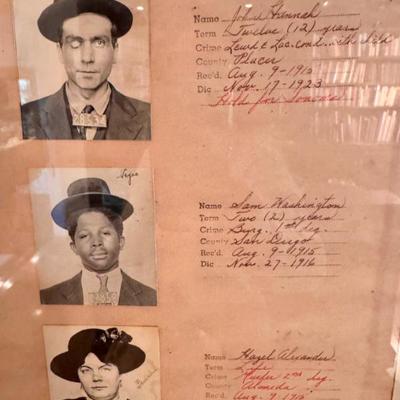 Name John Hannah
Term Twelve (12) years
Crime Lewd & Lac. cond. with child
County Placer
Rec'd. Aug. 9-1915
Dic Nov. 17-1923
Hold for
Negro
Name Sam Washington
Term Two (2) years
Crime Burg. 1st deg.
County San Diego
Rec'd. Aug. 9-1915
Dic Nov. 27-1916
Name Hazel Alexander
Term Life
Crime 2nd deg.
County Alameda
Rec'd. Aug. 9-1915